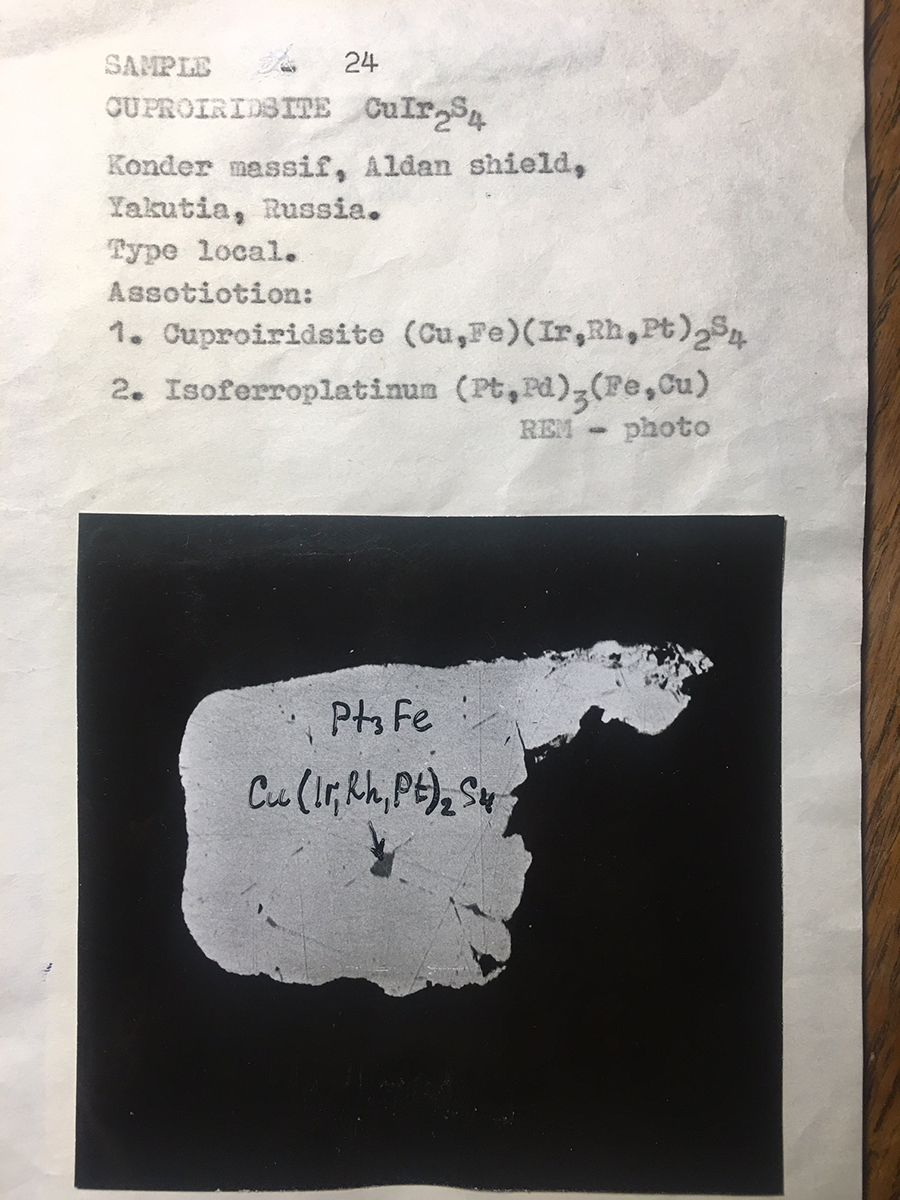 SAMPLE 24
CUPROIRIDSITE CuIr₂S₄
Konder massif, Aldan shield,
Yakutia, Russia.
Type local.
Assotiotion:
1. Cuproiridsite (Cu,Fe)(Ir,Rh,Pt)₂S₄
2. Isoferroplatinum (Pt,Pd)₃(Fe,Cu)
REM - photo
Pt₃Fe
Cu(Ir,Rh,Pt)₂S₄